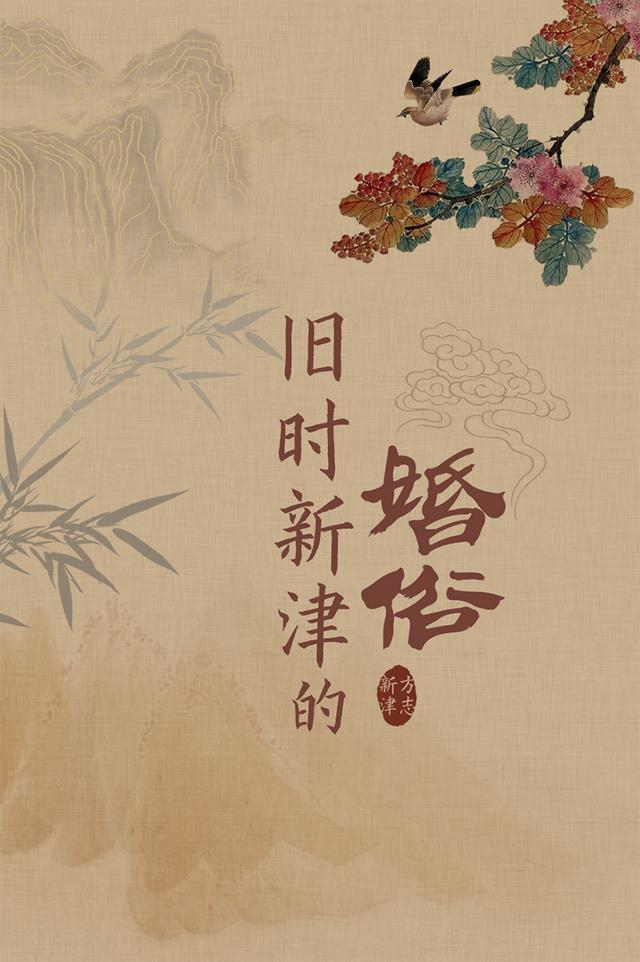 旧时新津的
婚俗
方志
新津